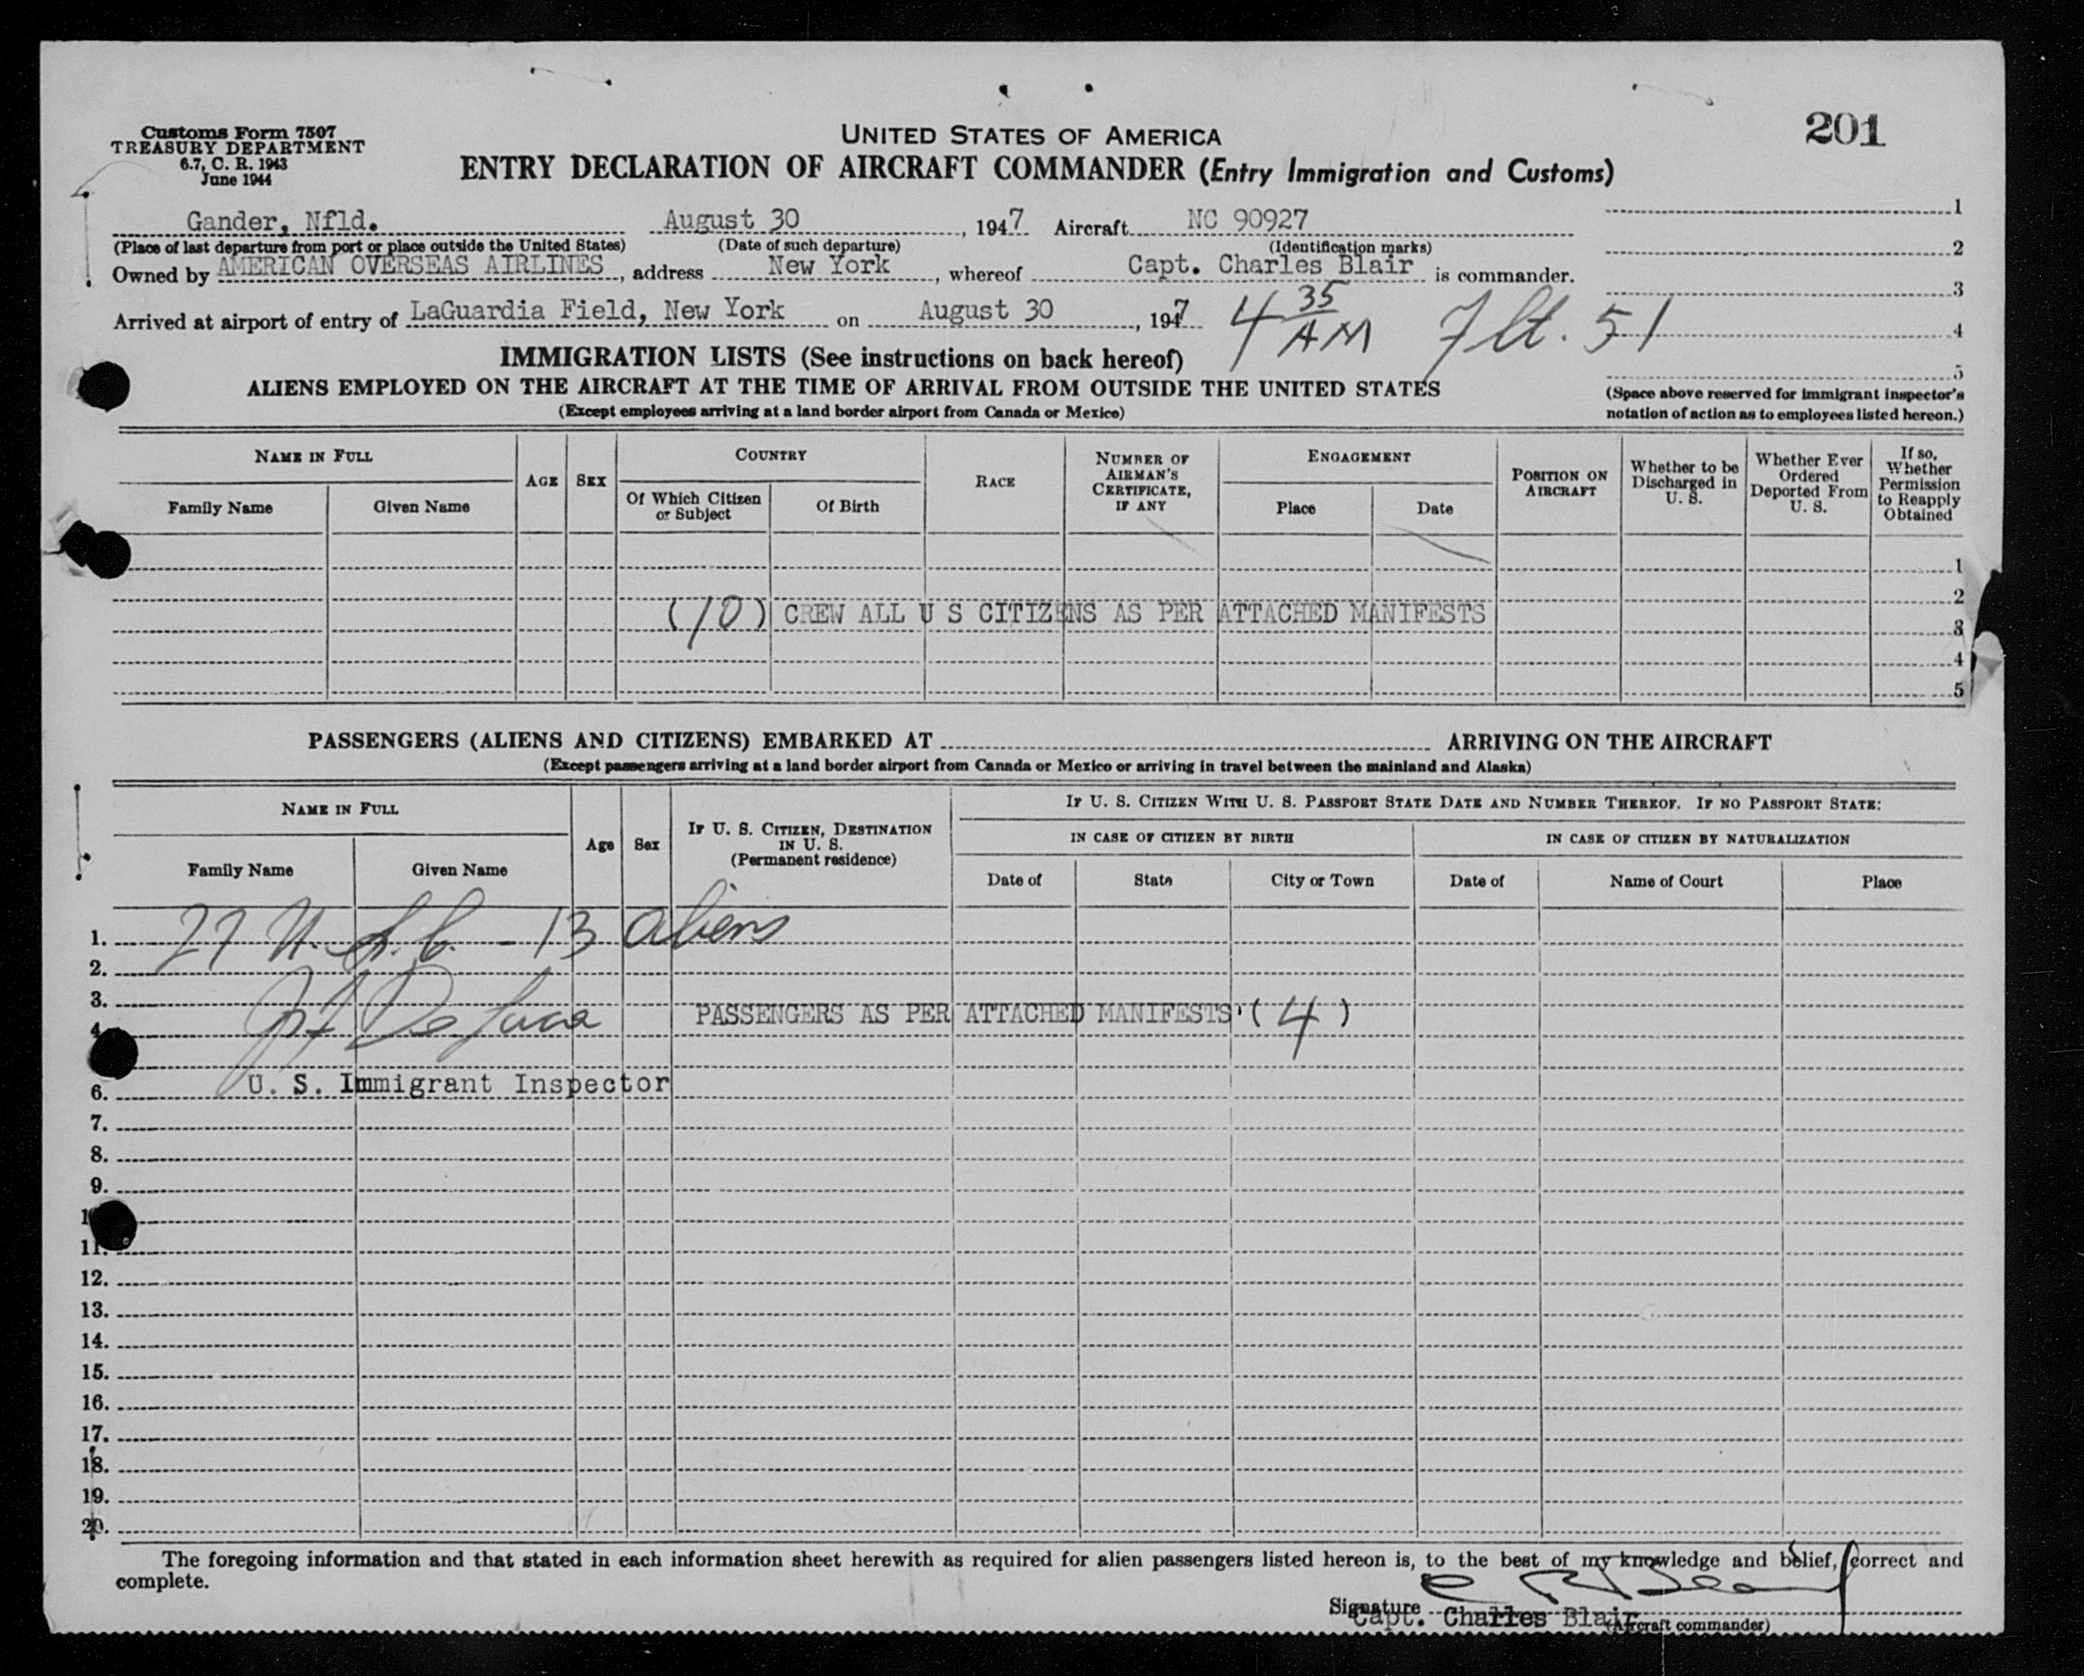 201
Customs Form 7507
TREASURY DEPARTMENT
6.7, C. R. 1943
June 1944
UNITED STATES OF AMERICA
ENTRY DECLARATION OF AIRCRAFT COMMANDER (Entry Immigration and Customs)
Gander, Nfld. August 30, 1947 Aircraft NC 90927
(Place of last departure from port or place outside the United States) (Date of such departure) (Identification marks)
Owned by AMERICAN OVERSEAS AIRLINES, address New York, whereof Capt. Charles Blair is commander.
Arrived at airport of entry of LaGuardia Field, New York on August 30, 1947 4 35 AM Flt. 51
1
2
3
4
5
(Space above reserved for immigrant inspector's notation of action as to employees listed hereon.)
IMMIGRATION LISTS (See instructions on back hereof)
ALIENS EMPLOYED ON THE AIRCRAFT AT THE TIME OF ARRIVAL FROM OUTSIDE THE UNITED STATES
(Except employees arriving at a land border airport from Canada or Mexico)
NAME IN FULL
Family Name Given Name
AGE SEX
COUNTRY
Of Which Citizen or Subject Of Birth
RACE
NUMBER OF AIRMAN'S CERTIFICATE, IF ANY
ENGAGEMENT
Place Date
POSITION ON AIRCRAFT
Whether to be Discharged in U. S.
Whether Ever Ordered Deported From U. S.
If so, Whether Permission to Reapply Obtained
1
2
(10) CREW ALL U S CITIZENS AS PER ATTACHED MANIFESTS
3
4
5
PASSENGERS (ALIENS AND CITIZENS) EMBARKED AT ARRIVING ON THE AIRCRAFT
(Except passengers arriving at a land border airport from Canada or Mexico or arriving in travel between the mainland and Alaska)
NAME IN FULL
Family Name Given Name
Age Sex
IF U. S. CITIZEN, DESTINATION IN U. S.
(Permanent residence)
IF U. S. CITIZEN WITH U. S. PASSPORT STATE DATE AND NUMBER THEREOF. IF NO PASSPORT STATE:
IN CASE OF CITIZEN BY BIRTH IN CASE OF CITIZEN BY NATURALIZATION
Date of State City or Town Date of Name of Court Place
1. 27 U.S.C. - 13 aliens
2.
3.
4. De Luca PASSENGERS AS PER ATTACHED MANIFESTS (4)
6. U. S. Immigrant Inspector
7.
8.
9.
1
11.
12.
13.
14.
15.
16.
17.
18.
19.
20.
The foregoing information and that stated in each information sheet herewith as required for alien passengers listed hereon is, to the best of my knowledge and belief, correct and
complete.
Signature
Capt. Charles Blair
(Aircraft commander)